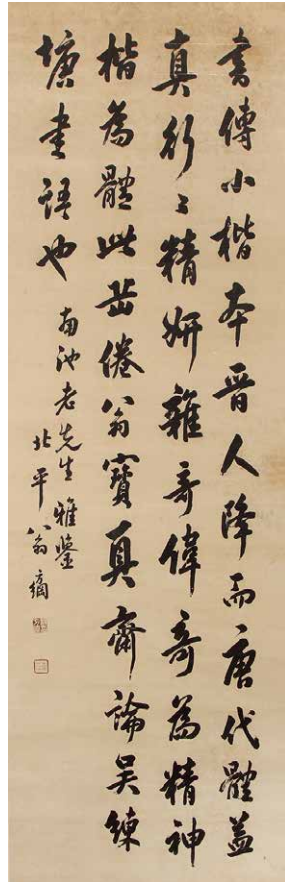 書傳小楷本晉人降而唐代體益
真行〻精妍雜奇偉奇為精神
楷為體此岳倦翁寶真齋論吳練
塘書語也
南池老先生雅鑒
北平翁